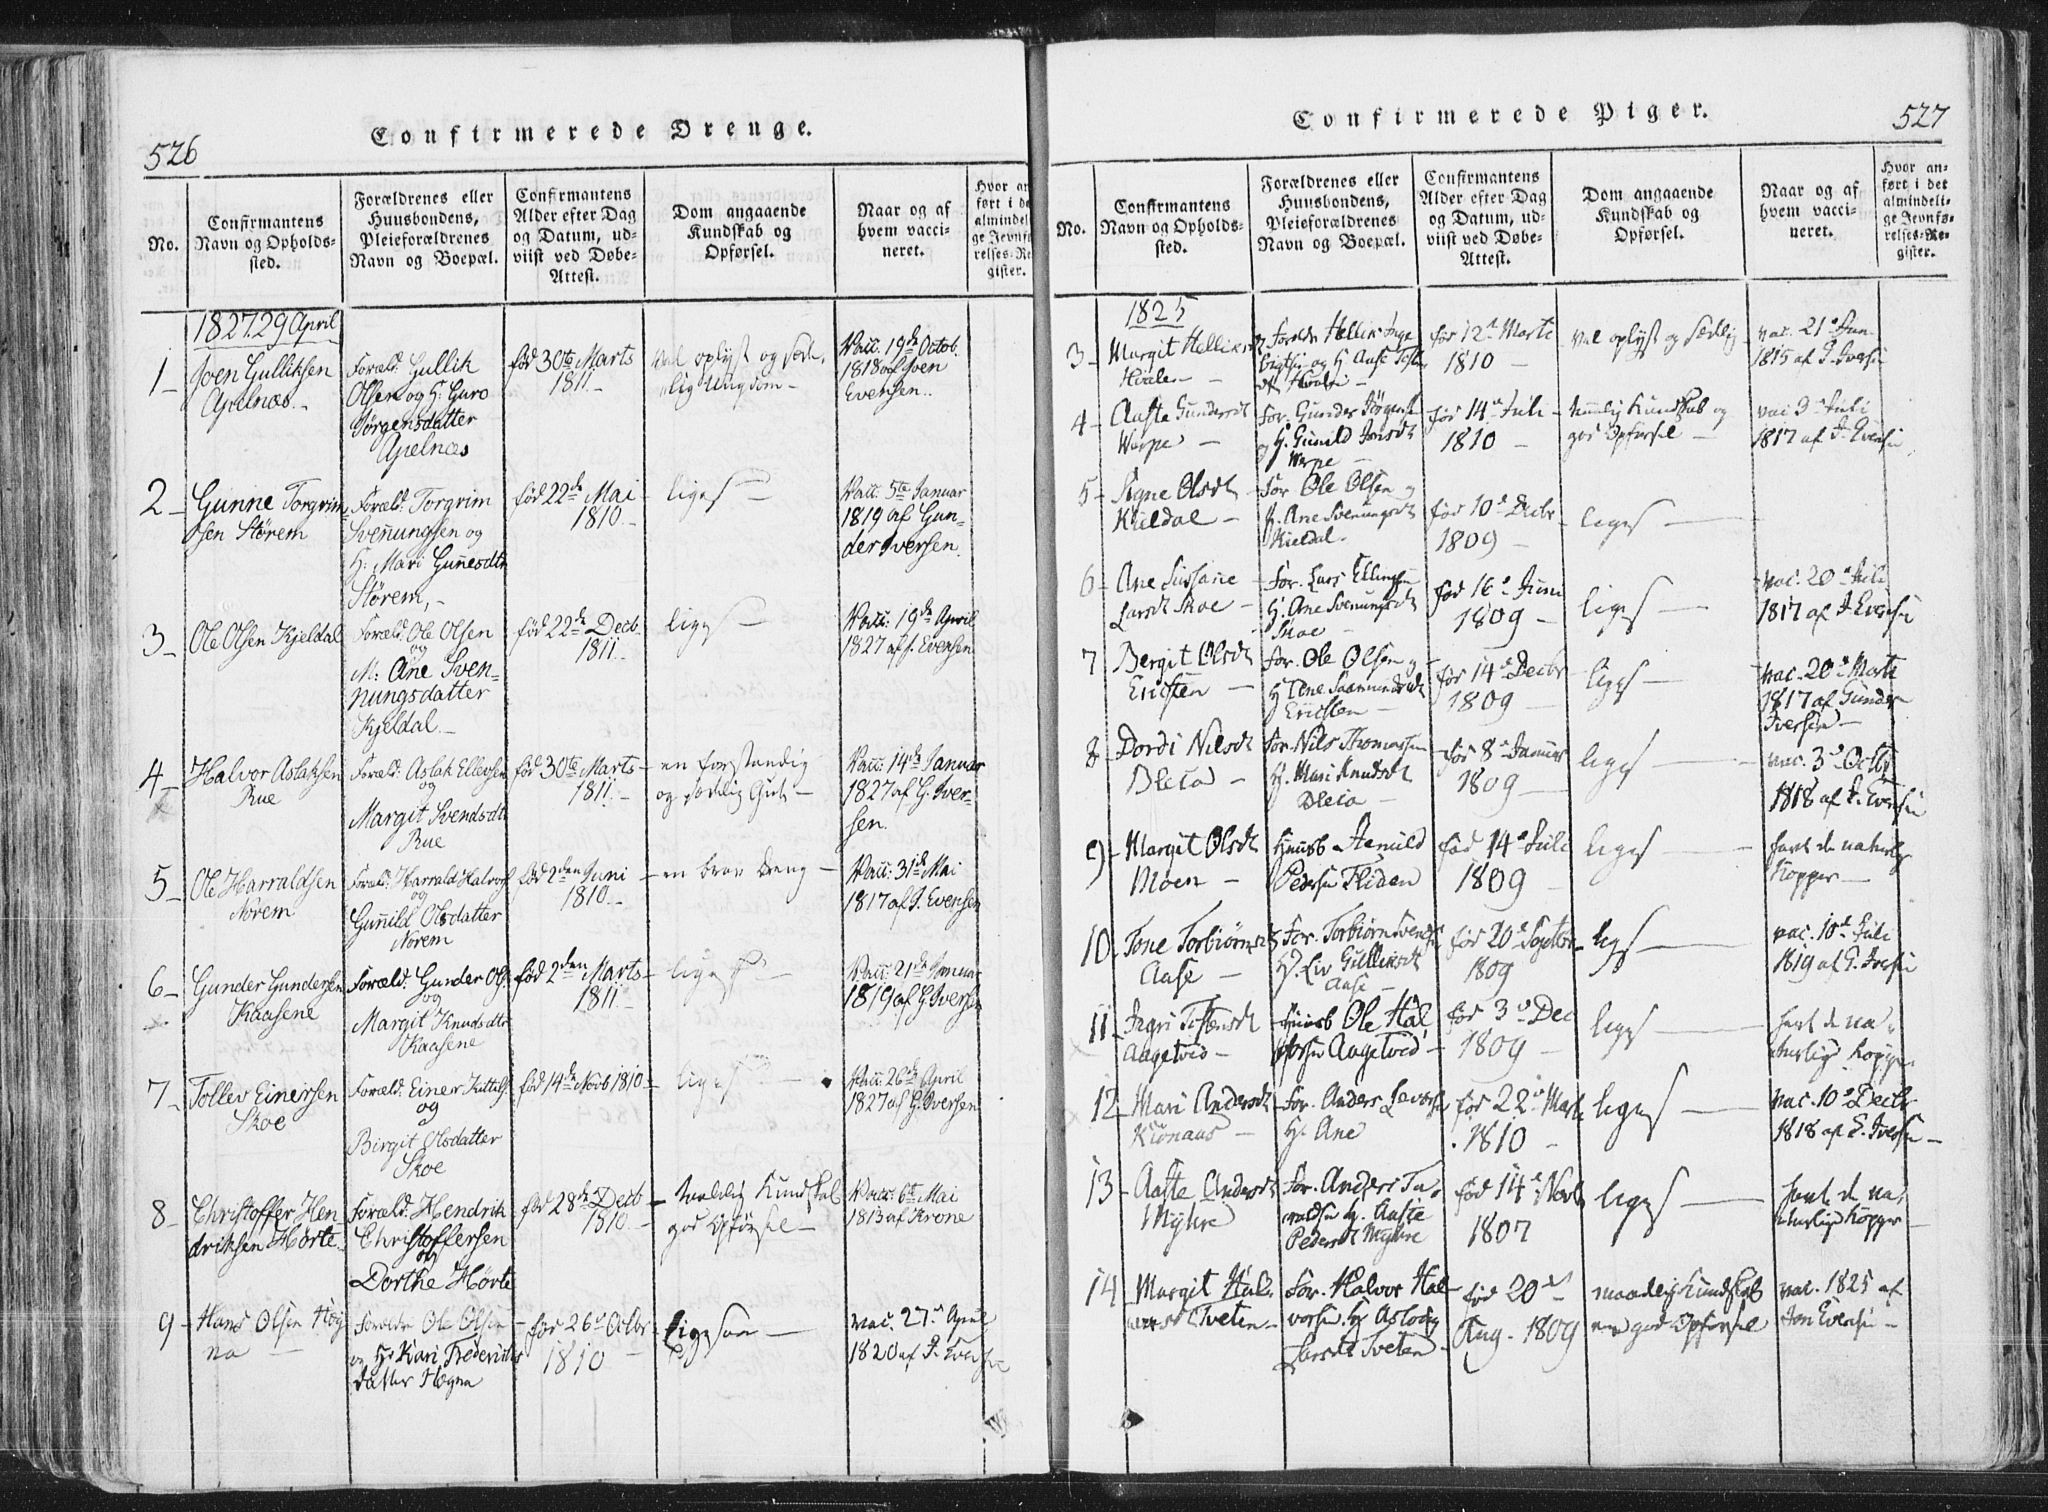 526
Confirmerede Drenge.
No.
Confirmantens
Navn og Opholds-
sted.
Forældrenes eller
Huusbondens,
Pleieforældrenes
Navn og Boepæl.
Confirmantens
Alder efter Dag
og Datum, ud-
viist ved Døbe-
Attest.
Dom angaaende
Kundskab og
Opførsel.
Naar og af
hvem vacci-
neret.
Hvor an
ført i de
almindel
ge Jevnf
relses-Re
gister.
1827. 29 April
1 Joen Gulliksen
Apelnæs
Foræld: Gullik
Olsen og H: Guro
Jørgensdatter
Apelnæs
fød 30te Marts
1811.
vel oplyst og sæde-
lig Ungdom
Vacc: 19de Octob.
1818 af Joen
Evensen.
2 Gunne Torgrim-
sen Storem
Foræld: Torgrim
Svenungsen og
H: Mari Gunesdtr
Storem,
fød 22de Mai
1810.
liges
Vacc: 5te Januar
1819 af Gun-
der Iversen.
3 Ole Olsen Kjeldal
Foræld: Ole Olsen
og
M: Ane Sven-
nungsdatter
Kjeldal
fød 22de Decb.
1811.
liges
Vacc: 19de April
1827 af J. Evensen
4 Halvor Aslaksen
Rue
Foræld: Aslak Ellevsen
og
Margit Svendsdtr
Rue
fød 30te Marts
1811.
en forstandig
og sædelig Gut
Vacc: 14de Januar
1827 af G. Iver-
sen.
5 Ole Harraldsen
Norem
Foræld: Harrald Halvors
og
Gunild Olsdatter
Norem
fød 2den Juni
1810.
en brav Dreng
Vacc: 31de Mai
1817 af J. Evensen
6 Gunder Gundersen
Kaasene
Foræld: Gunder Ols
og
Margit Knudsdtr
Kaasene
fød 2den Marts
1811.
liges
Vacc: 21de Januar
1819 af G. Iversen
7 Tollev Einersen
Skoe
Foræld: Einer Kittels
og
Birgit Olsdatter
Skoe
fød 14de Novb 1810
liges
Vacc: 26de April
1827 af G. Iversen
8 Christoffer Hen-
driksen Hørte
Foræld: Hendrik
Christoffersen
og
Dorthe Hørte
fød 28de Decb
1810.
taalelig Kundskab
god Opførsel
Vacc: 6te Mai
1813 af Krone
9 Hans Olsen Høg
na
Forældre Ole Olsen
og H: Kari Frederiks
datter Høgna
før 26de Octbr
1810
ligesaa
vac. 27de April
1820 af J. Evensen
527
Confirmerede Piger.
No.
Confirmantens
Navn og Opholds-
sted.
Forældrenes eller
Huusbondens,
Pleieforældrenes
Navn og Boepæl.
Confirmantens
Alder efter Dag
og Datum, ud-
viist ved Døbe-
Attest.
Dom angaaende
Kundskab og
Opførsel.
Naar og af
hvem vacci-
neret.
Hvor an-
ført i det
almindeli-
ge Jevnfø-
relses-Re-
gister.
1825
3 Margit Helliksdt
Hvale
Foreldr Hellik
og H. Aase
fød 12te Marti
1810
vel oplyst og sædelig
vac. 21de Jun
1815 af J. Iversen
4 Aaste Gundersdt
Werpe
For. Gunder Jørgens
og H. Gunild Jonsdt
Werpe
fød 14de Juli
1810
Kundskab og
god Opførsel
vac 3de Juli
1817 af J. Evensen
5 Signe Olsdt
Kieldal
For Ole Olsen og
H. Ane Svenungsdt
Kieldal
fød 10de Decbr
1809
liges
6 Ane Sussane
Larsdt Skoe
For. Lars Ellingsen
H. Ane Svenungsdt
Skoe
fød 16de Juni
1809
liges
vac. 20de Juli
1817 af J Evensen
7 Bergit Olsdt
Ericsten
For. Ole Olsen og
H Tone Saamundsdt
Ericsten
fød 14de Decbr
1809
liges
vac. 20de Marti
1817 af Gunder
Iversen
8 Dordi Nilsdt
Bleca
For. Nils Thomassen
H. Mari Knudsdt
Bleca
fød 8de Januar
1809
liges
vac. 3de Octbr
1818 af J. Evensen
9 Margit Olsdt
Moen
Huusb
Pedersen
fød 14de Juli
1809
liges
havt de naturlig
Kopper
10 Tone Torbiørnsdt
Aase
For. Torbiørn Svends
H. Liv Gulliksdt
Aase
fød 20de Septbr
1809
liges
vac. 10de Juli
1819 af G. Iversen
11 Ingri Tostensdt
Aagetvid
Huusb Ole Hal
vorsen Aagetvid
fød 3de Dec
1809
liges
havt de na-
turlig Kopper
12 Mari Andersdt
Kionaas
For. Anders
H. Ane
fød 22de Marti
1810
liges
vac. 10de Decbr
1818 af G. Iversen
13 Aaste Andersdt
Myhre
For. Anders Ta-
raldsen H. Aaste
Pedersdt Myhre
fød 14de Novb
1807
liges
havt de na-
turlige Kopper
14 Margit Hal-
vorsdt Tveten
For. Halvor Hal-
vorsen H Aslaug
Larsdt Tveten
fød 20de
Aug. 1809
maadelig Kundskab
men god Opførsel
vac. 1825 af
Jon Evensen